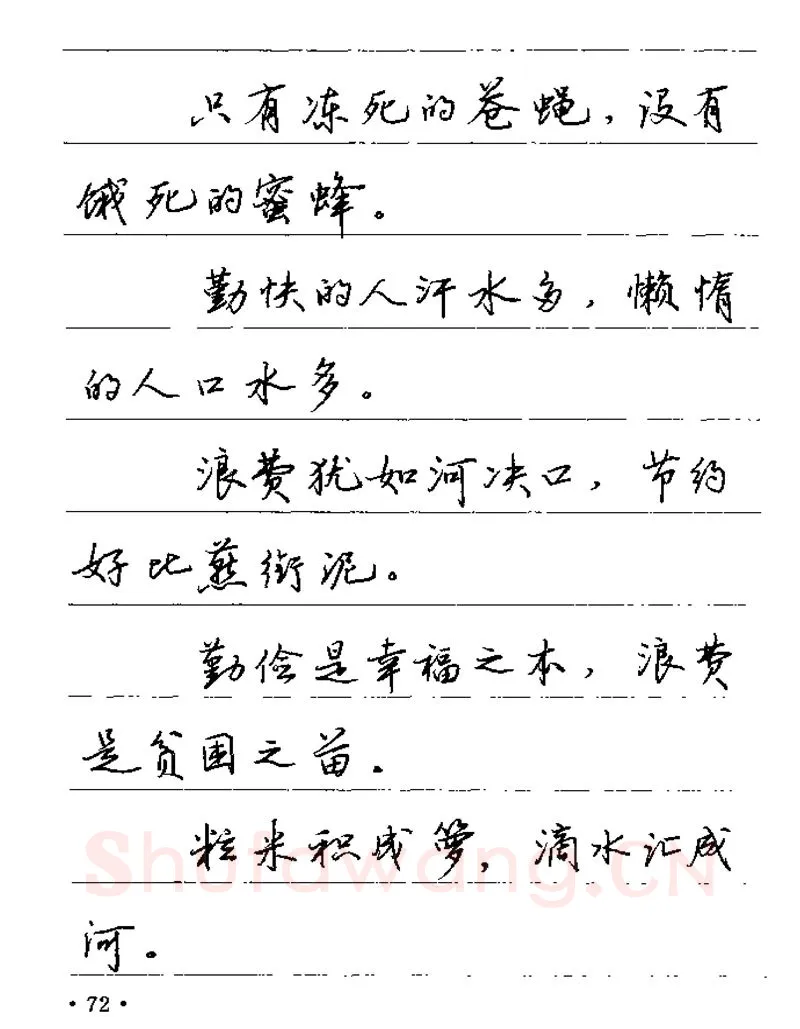 只有冻死的苍蝇，没有
饿死的蜜蜂。
勤快的人汗水多，懒惰
的人口水多。
浪费犹如河决口，节约
好比燕衔泥。
勤俭是幸福之本，浪费
是贫困之苗。
粒米积成箩，滴水汇成
河。
Shufawang.CN
·72·